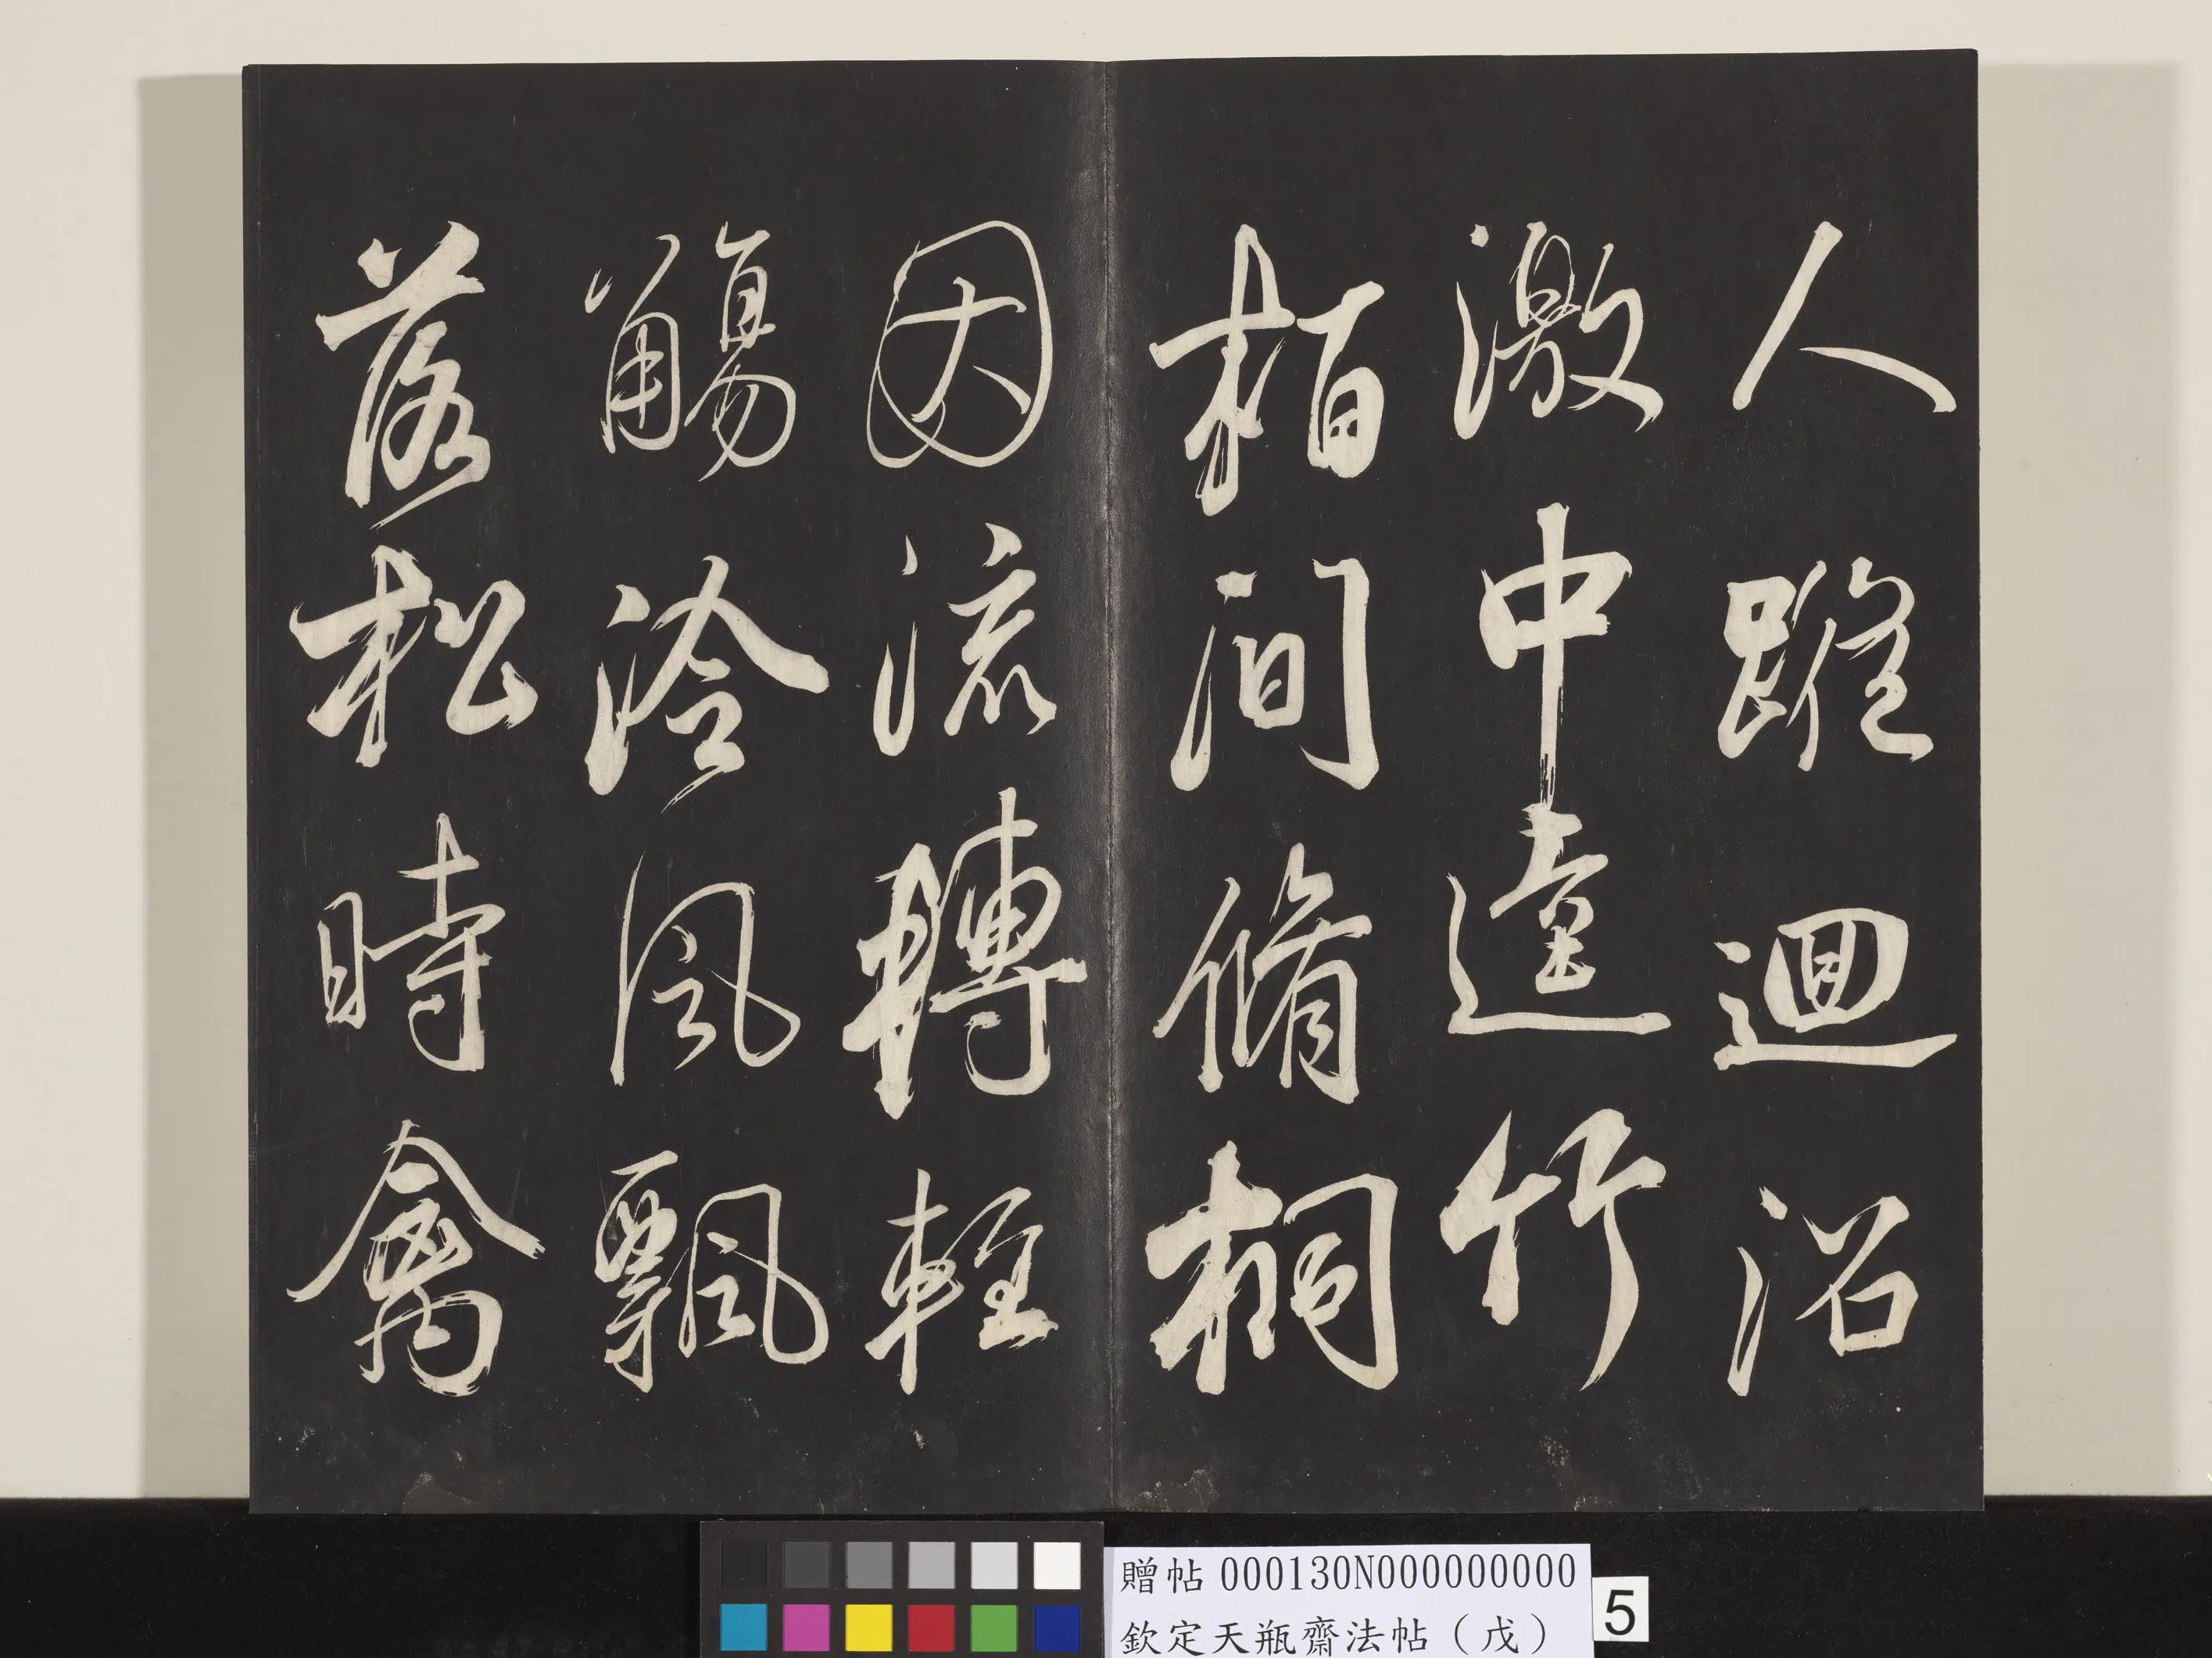 人蹤迴沼
激中逵竹
栢間脩桐
因流轉輕
觴泠風飄
落松時禽
贈帖 000130N000000000
欽定天瓶齋法帖（戊）
5